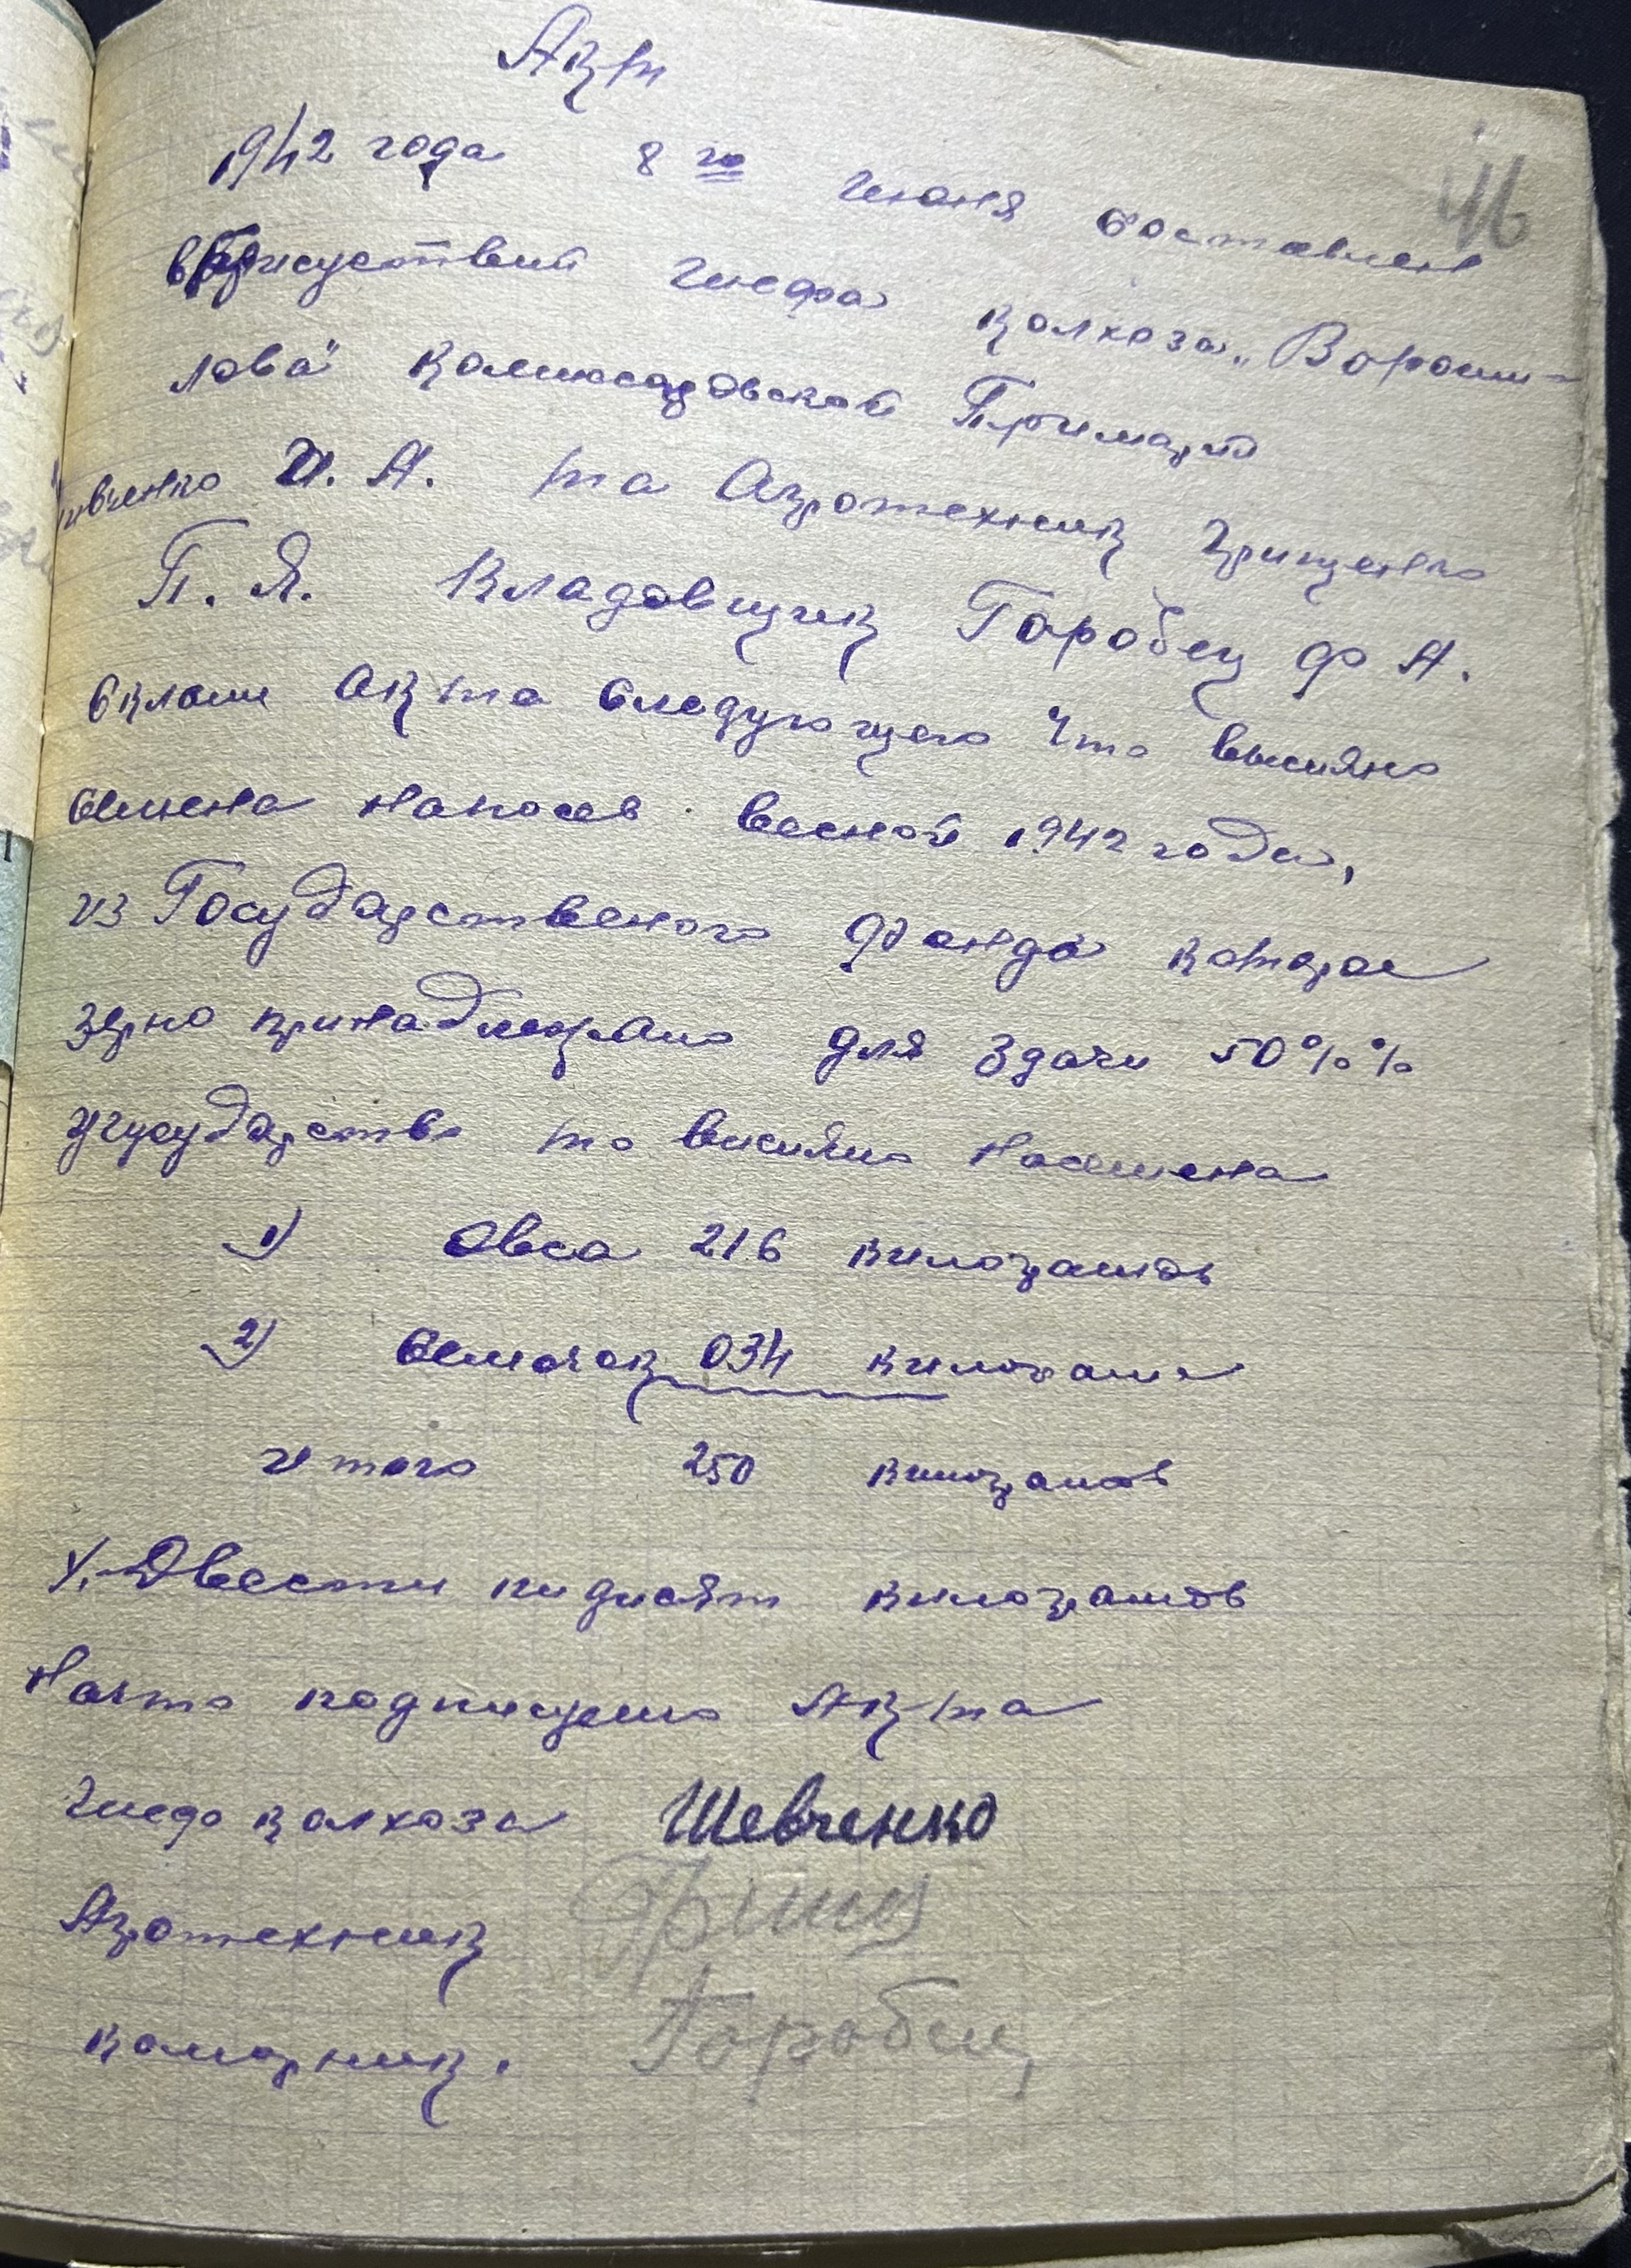 Акт
1942 года 8 го июня составлен
46
в Присуствии Шефа колхоза „Вороши-
лова" Комисаровской Примарii
Шевченко И. А. та Агротехник Грищенко
П. Я. Кладовщик Горобец Ф А.
склали Акта следующего что висияно
семена напосев весной 1942 года,
из Государственого Фонда которое
зерно принадлежало для Здачи 50%%
угусударство то висияно Насемена
1) Овса 216 килограмов
2) Семочок 034 килограма
итого 250 килограмов
Двести пидисят килограмов
Начто подпишемо Акта
Шеф колхоза Шевченко
Агротехник Грищ
коморник. Горобец